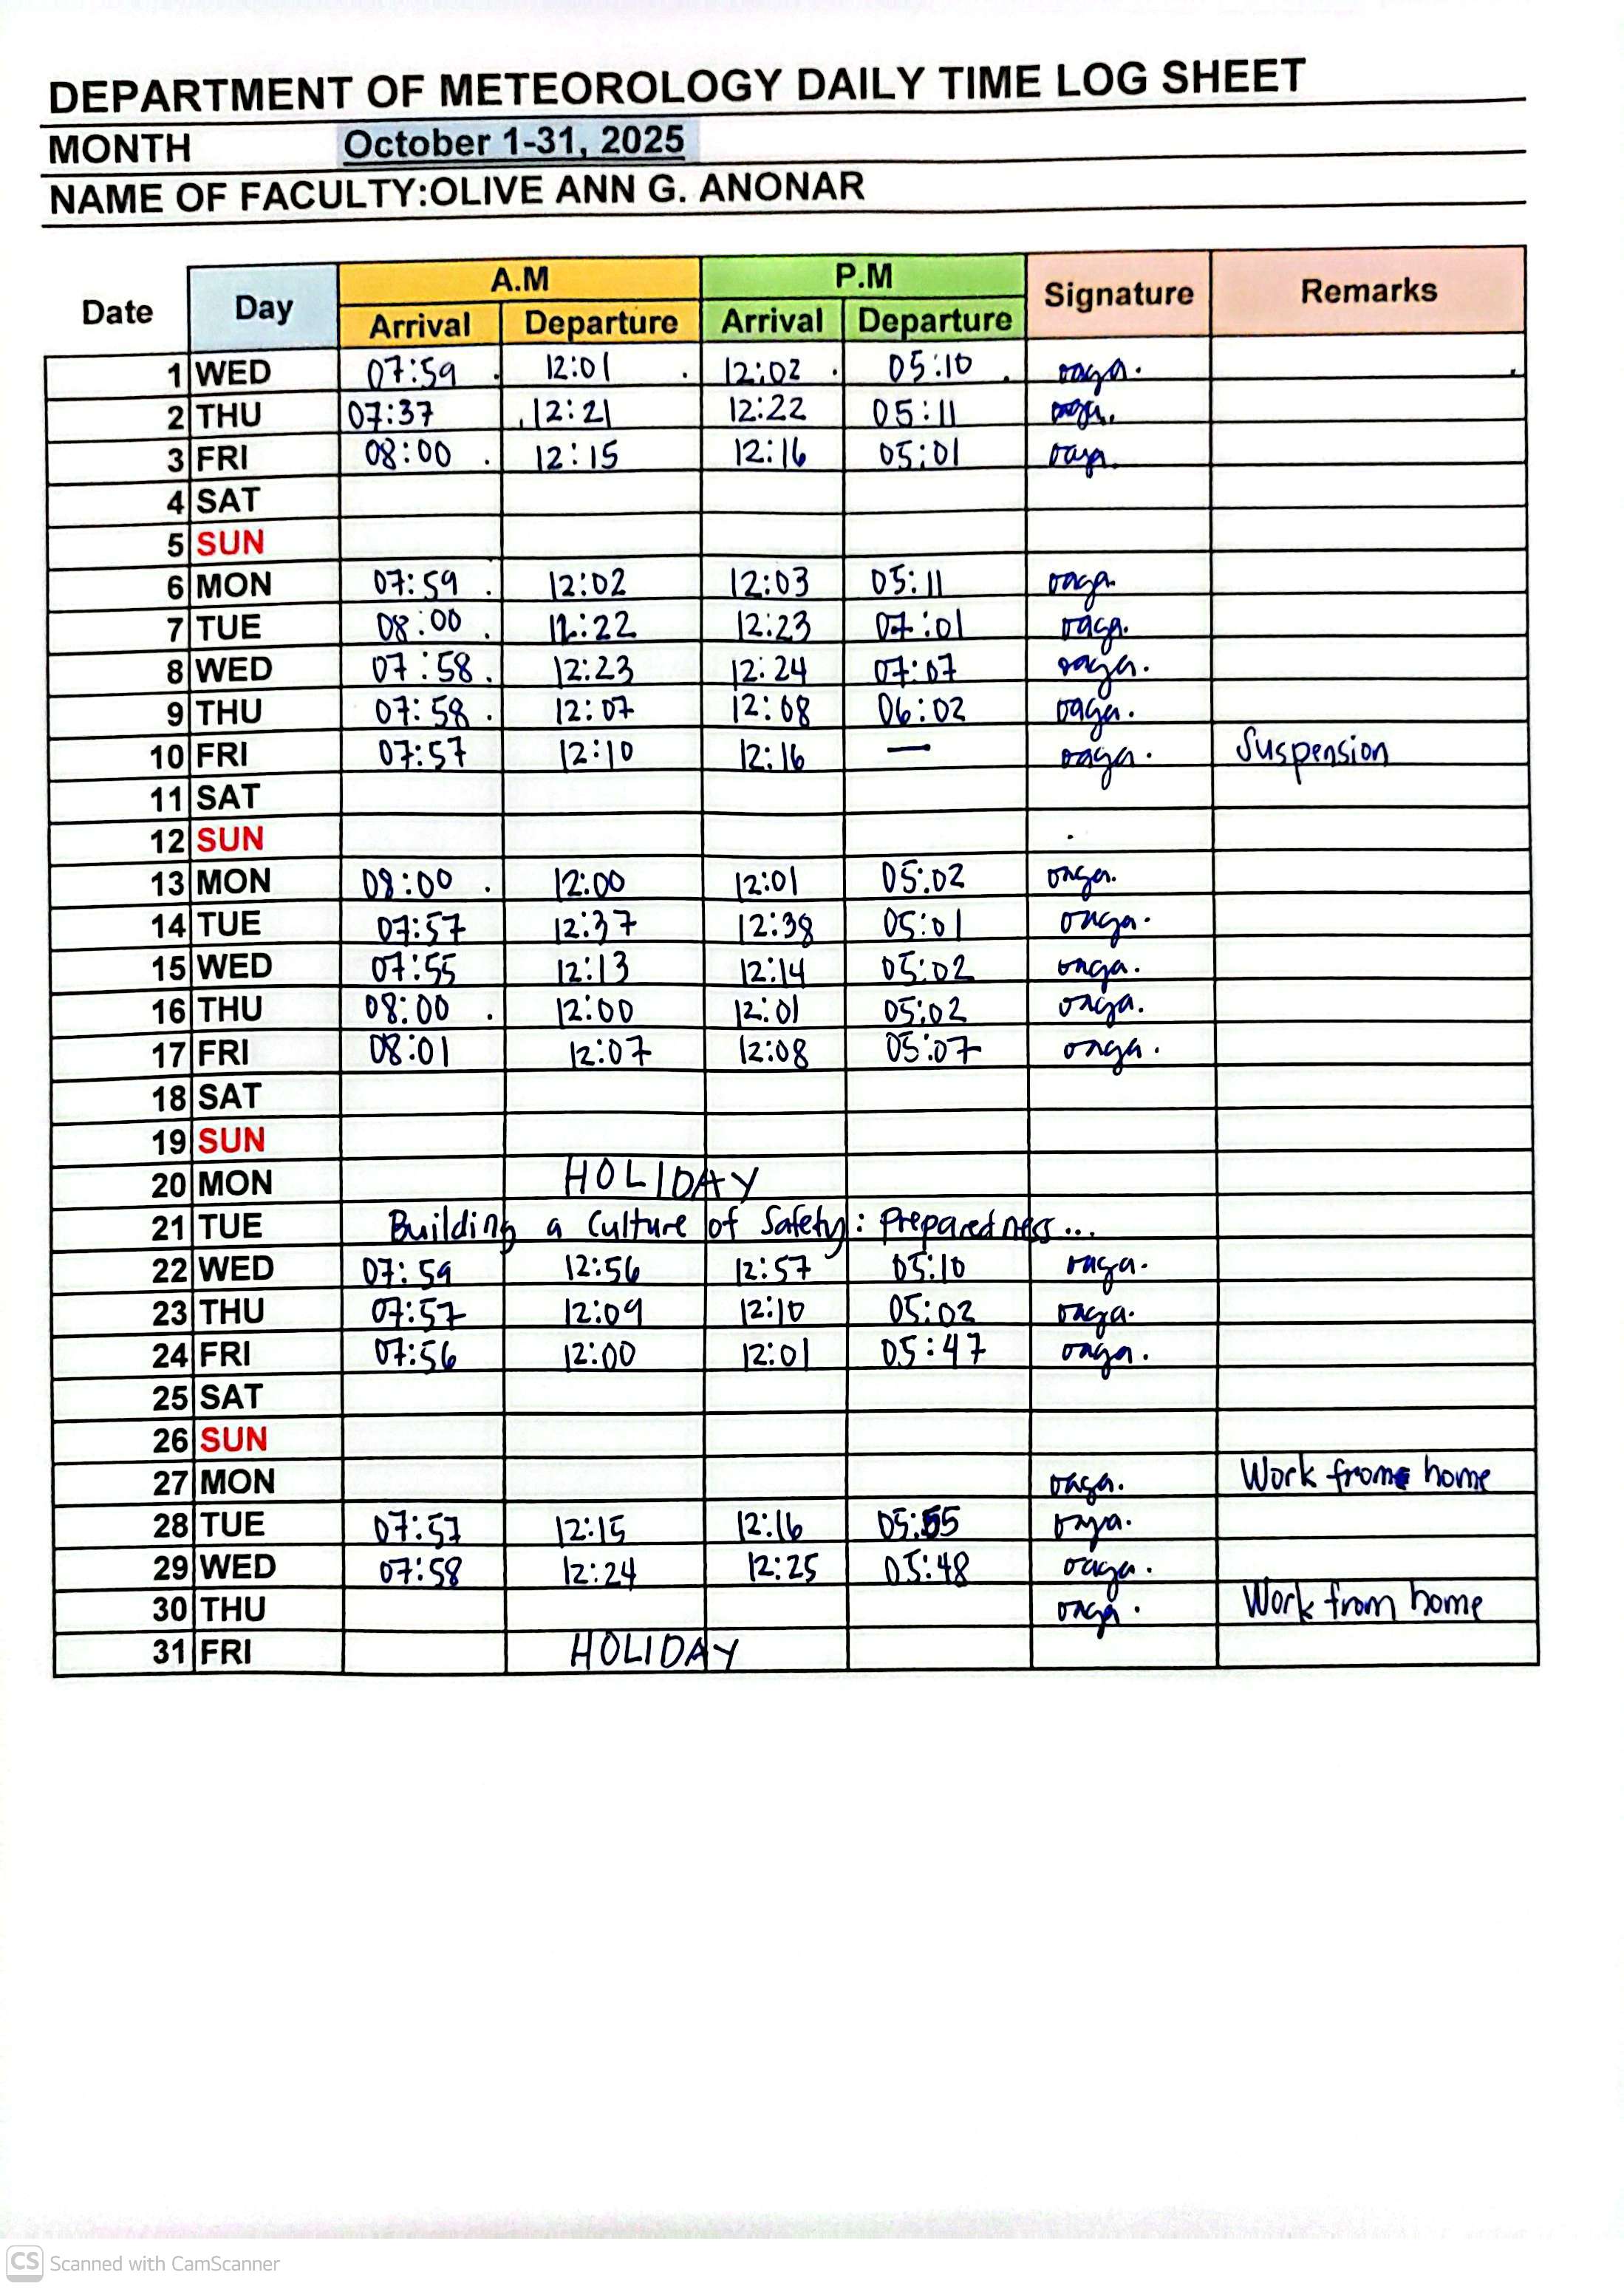 DEPARTMENT OF METEOROLOGY DAILY TIME LOG SHEET
MONTH October 1-31, 2025
NAME OF FACULTY:OLIVE ANN G. ANONAR
Date Day A.M P.M Signature Remarks
Arrival Departure Arrival Departure
1 WED 07:59 12:01 12:02 05:10
2 THU 07:37 12:21 12:22 05:11
3 FRI 08:00 12:15 12:16 05:01
4 SAT
5 SUN
6 MON 07:59 12:02 12:03 05:11
7 TUE 08:00 12:22 12:23 07:01
8 WED 07:58 12:23 12:24 07:07
9 THU 07:58 12:07 12:08 06:02
10 FRI 07:57 12:10 12:16 — Suspension
11 SAT
12 SUN
13 MON 08:00 12:00 12:01 05:02
14 TUE 07:57 12:37 12:38 05:01
15 WED 07:55 12:13 12:14 05:02
16 THU 08:00 12:00 12:01 05:02
17 FRI 08:01 12:07 12:08 05:07
18 SAT
19 SUN
20 MON HOLIDAY
21 TUE Building a Culture of Safety: Preparedness...
22 WED 07:59 12:56 12:57 05:10
23 THU 07:57 12:09 12:10 05:02
24 FRI 07:56 12:00 12:01 05:47
25 SAT
26 SUN
27 MON Work from home
28 TUE 07:57 12:15 12:16 05:55
29 WED 07:58 12:24 12:25 05:48
30 THU Work from home
31 FRI HOLIDAY
CS Scanned with CamScanner